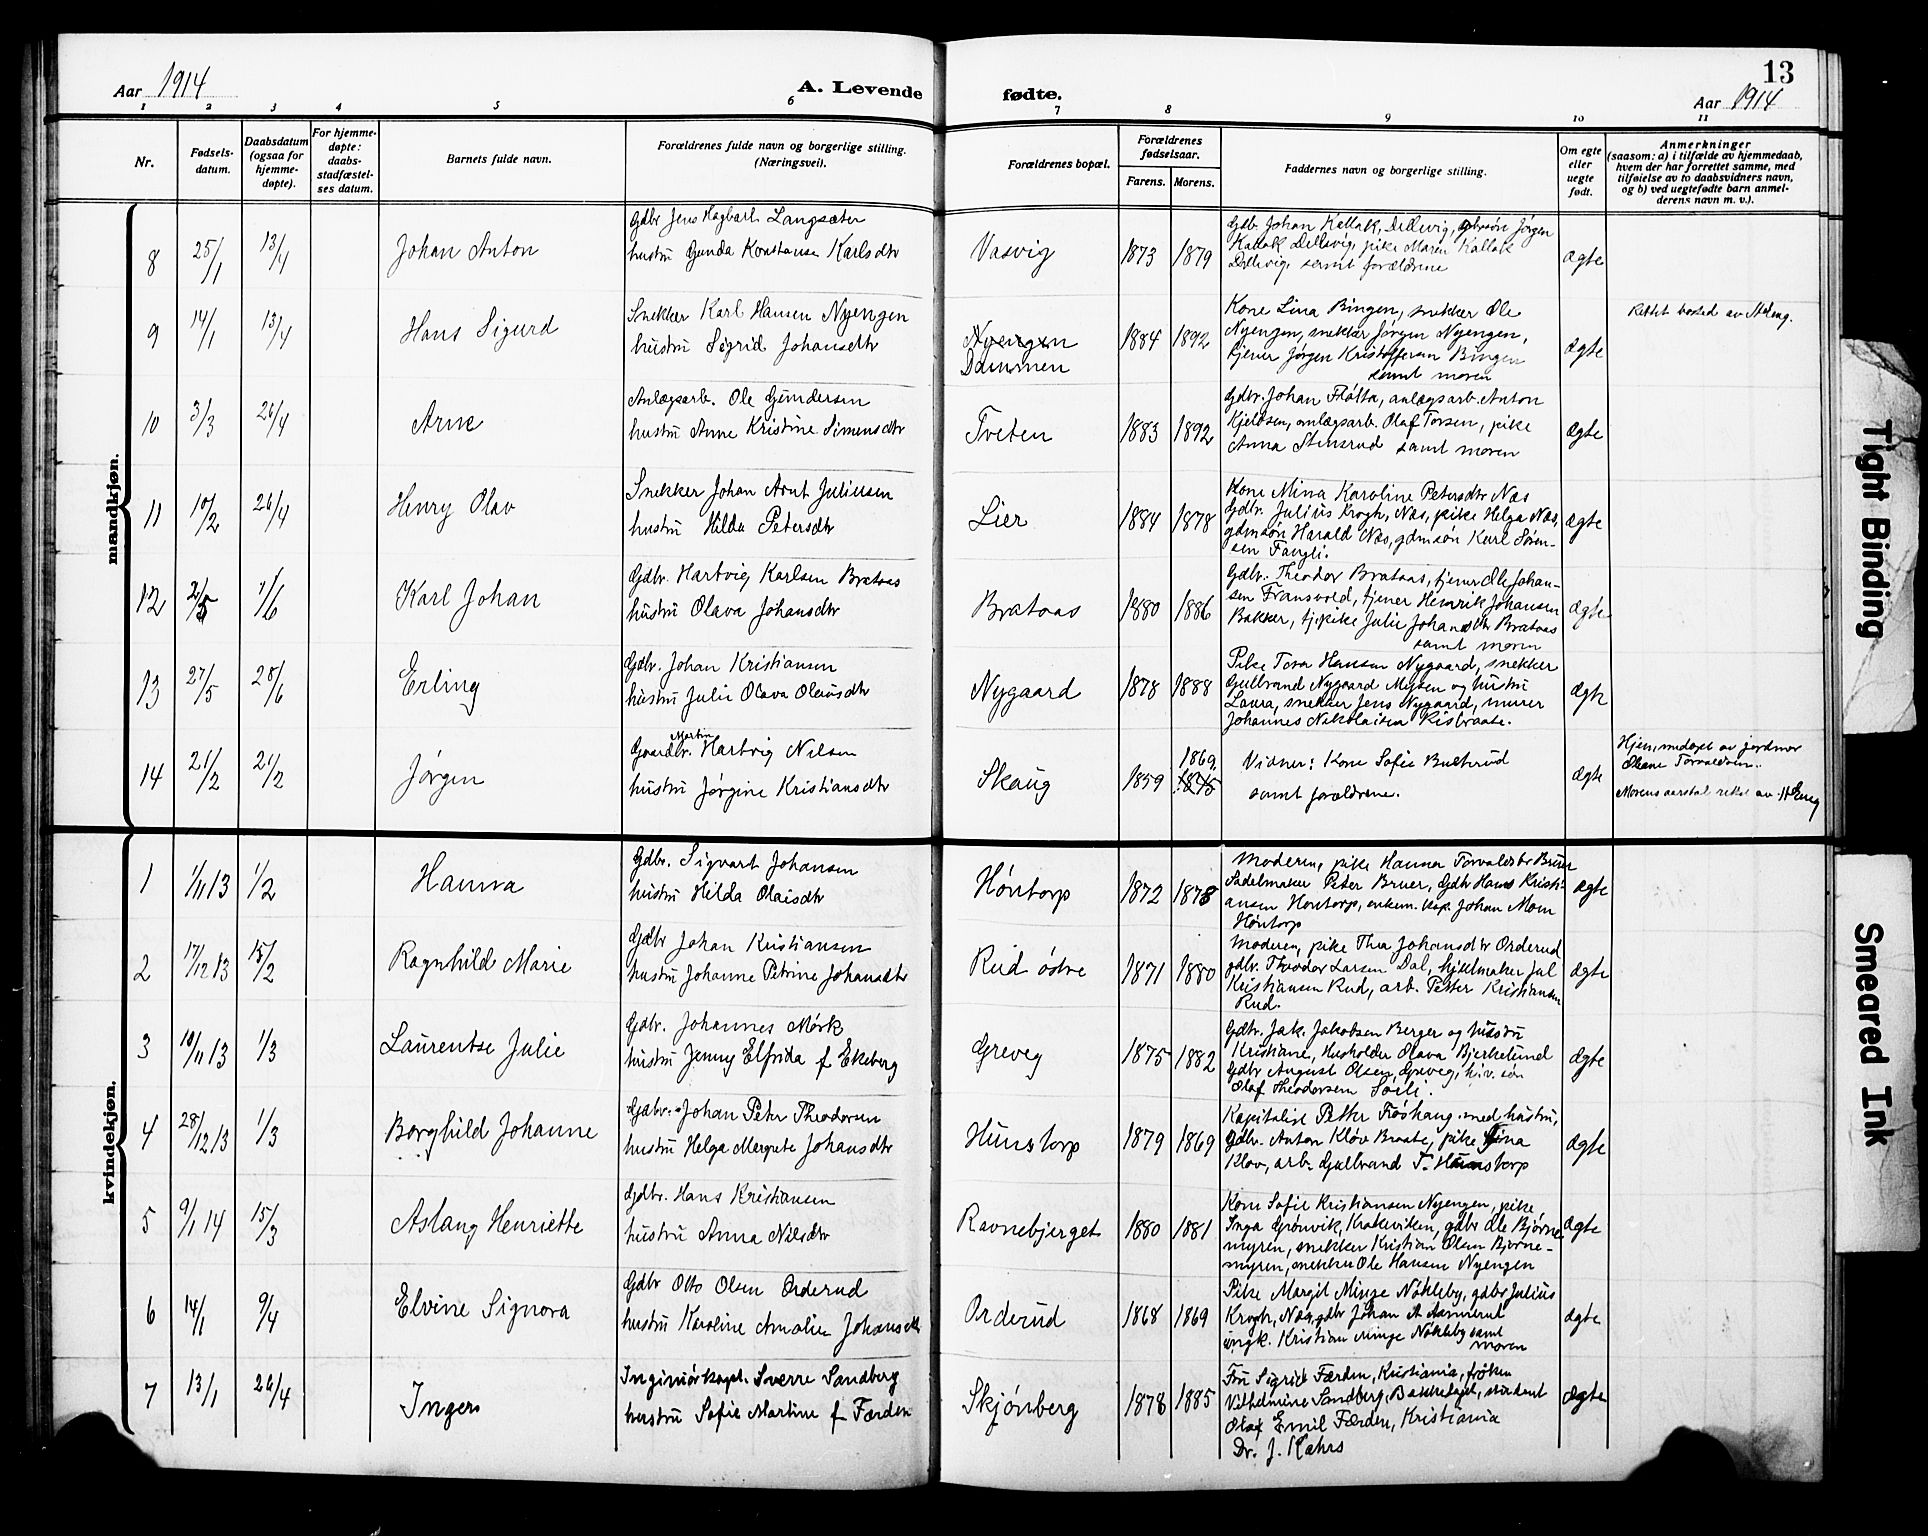 Aar 1914
A. Levende
fødte.
13
Aar 1914
1 2 3 4 5 6 7 8 9 10 11
Nr.
Fødsels-
datum.
Daabsdatum
(ogsaa for
hjemme-
døpte).
For hjemme-
døpte:
daabs-
stadfæstel-
ses datum.
Barnets fulde navn.
Forældrenes fulde navn og borgerlige stilling.
(Næringsvei).
Forældrenes bopæl.
Forældrenes
fødselsaar.
Farens. Morens.
Faddernes navn og borgerlige stilling.
Om egte
eller
uegte
født.
Anmerkninger
(saasom: a) i tilfælde av hjemmedaab,
hvem der har forrettet samme, med
tilføielse av to daabsvidners navn,
og b) ved uegtefødte barn anmel-
derens navn m. v.).
mandkjøn.
8 25/1 13/4 Johan Anton
Gdbr Jens Hagbart Langsæter
hustru Gunda Konstanse Karlsdtr
Vasvig 1873 1879
Gdb. Johan Kallak, Dillevig, gbrsøn Jørgen
Kallak Dillevig, pike Maren Kallak
Dillevig samt forældrene
ægte
9 14/1 13/4 Hans Sigurd
Snekker Karl Hansen Nyengen
hustru Sigrid Johansdtr
Nyengen
Dammen
1884 1892
Kone Lina Bingen, snekker Ole
Nyengen, snekker Jørgen Nyengen,
tjener Jørgen Kristoffersen Bingen
samt moren
ægte
Rettet bosted av
10 3/3 26/4 Arne
Anlægsarb. Ole Gundersen
hustru Anne Kristine Simensdtr
Tveten 1883 1892
Gdbr. Johan Flötta, anlægsarb. Anton
Kjeldsen, anlægsarb. Olaf Torsen, pike
Anna Stensrud samt moren
ægte
11 10/2 26/4 Henry Olav
Snekker Johan Arnt Juliusen
hustru Hilda Petersdtr
Lier 1884 1878
Kone Mina Karoline Petersdtr Næs
Gdbr. Julius Krogh, Næs, pike Helga Næs,
gdmsøn Harald Næs, gdmsøn Karl Søren-
sen Fangli.
ægte
12 2/5 1/6 Karl Johan
Gdbr. Hartvig Karlsen Brataas
hustru Olava Johansdtr
Brataas 1880 1886
Gdbr. Theodor Brataas, tjener Ole Johan-
sen Fransvold, tjener Henrik Johansen
Bakker, tj.pike Julie Johansdtr Brataas
samt moren
ægte
13 27/5 28/6 Erling
Gdbr. Johan Kristiansen
hustru Julie Olava Olausdtr
Nygaard 1878 1888
Pike Tora Hansen Nygaard, snekker
Gulbrand Nygaard Mysen og hustru
Laura, snekker Jens Nygaard, murer
Johannes Nikolaisen Risbraate.
ægte
14 21/2 21/2 Jørgen
Martin
Gaardbr. Hartvig Nilsen
hustru Jørgine Kristiansdtr
Skaug 1859
1869.
1875
Vidner: Kone Sofie Butterud
samt forældrene.
ægte
Hjemmedøpt av jordmor
Torvaldsen.
Morens aarstal rettet av
kvindekjøn.
1 1/11 13 1/2 Hanna
Gdbr. Sigvart Johansen
hustru Hilda Olaisdtr
Høntorp 1872 1878
Moderen, pike Hanna Torvaldsdtr Bruer
Sadelmaker Peter Bruer, Gdbr Hans Kristi-
ansen Høntorp, enkem. kap. Johan Moen
Høntorp
ægte
2 17/12 13 15/2 Ragnhild Marie
Gdbr Johan Kristiansen
hustru Johanne Petrine Johansdtr
Rud østre 1871 1880
Moderen, pike Thea Johansdtr Orderud
gdbr. Theodor Larsen Dal, hjulmaker Jul
Kristiansen Rud, arb. Petter Kristiansen
Rud.
ægte
3 10/11 13 1/3 Laurentse Julie
Gdbr. Johannes Mörk
hustru Jenny Elfrida f Ekeberg
Greveg 1875 1882
Gdbr. Jak. Jakobsen Berger og hustru
Kristiane, Husholder Olava Bjerkelund
Gdbr August Olsen, Greveg, søn
Olaf Theodorsen Söili.
ægte
4 28/12 13 1/3 Borghild Johanne
Gdbr. Johan Peter Theodorsen
hustru Helga Mergrete Johansdtr
Hunstorp 1879 1869
Kapitalist Petter Fröshaug med hustru,
Gdbr. Anton Klöv Braate, pike Tina
Klöv, arb. Gulbrand T. Hunstorp
ægte
5 9/1 14 15/3 Aslaug Henriette
Gdbr. Hans Kristiansen
hustru Anna Nilsdtr
Ravnebjerget 1880 1881
Kone Sofie Kristiansen Nyengen, pike
Inga Grönvik, Krakeviken, gdbr Ole Bjørne-
myren, snekker Kristian Olsen Bjørne-
myren, snekker Ole Hansen Nyengen
ægte
6 14/1 9/4 Elvine Signora
Gdbr Otto Olsen Orderud
hustru Karoline Amalie Johansdtr
Orderud 1868 1869
Pike Margit Minge Nökleby, gdbr Julius
Krogh, Næs, gdbr Johan A
ungk. Kristian Minge Nökleby samt
moren
ægte
7 13/1 26/4 Inger
Ingeniørkapt. Sverre Sandberg
hustru Sofie Martine f Færden
Skjønberg 1878 1885
Fru Sigrid Færden, Kristiania, fröken
Vilhelmine Sandberg, Bækkelaget, student
Olaf Emil Færden, Kristiania
Dr. J. Kahrs
ægte
Tight Binding
Smeared Ink